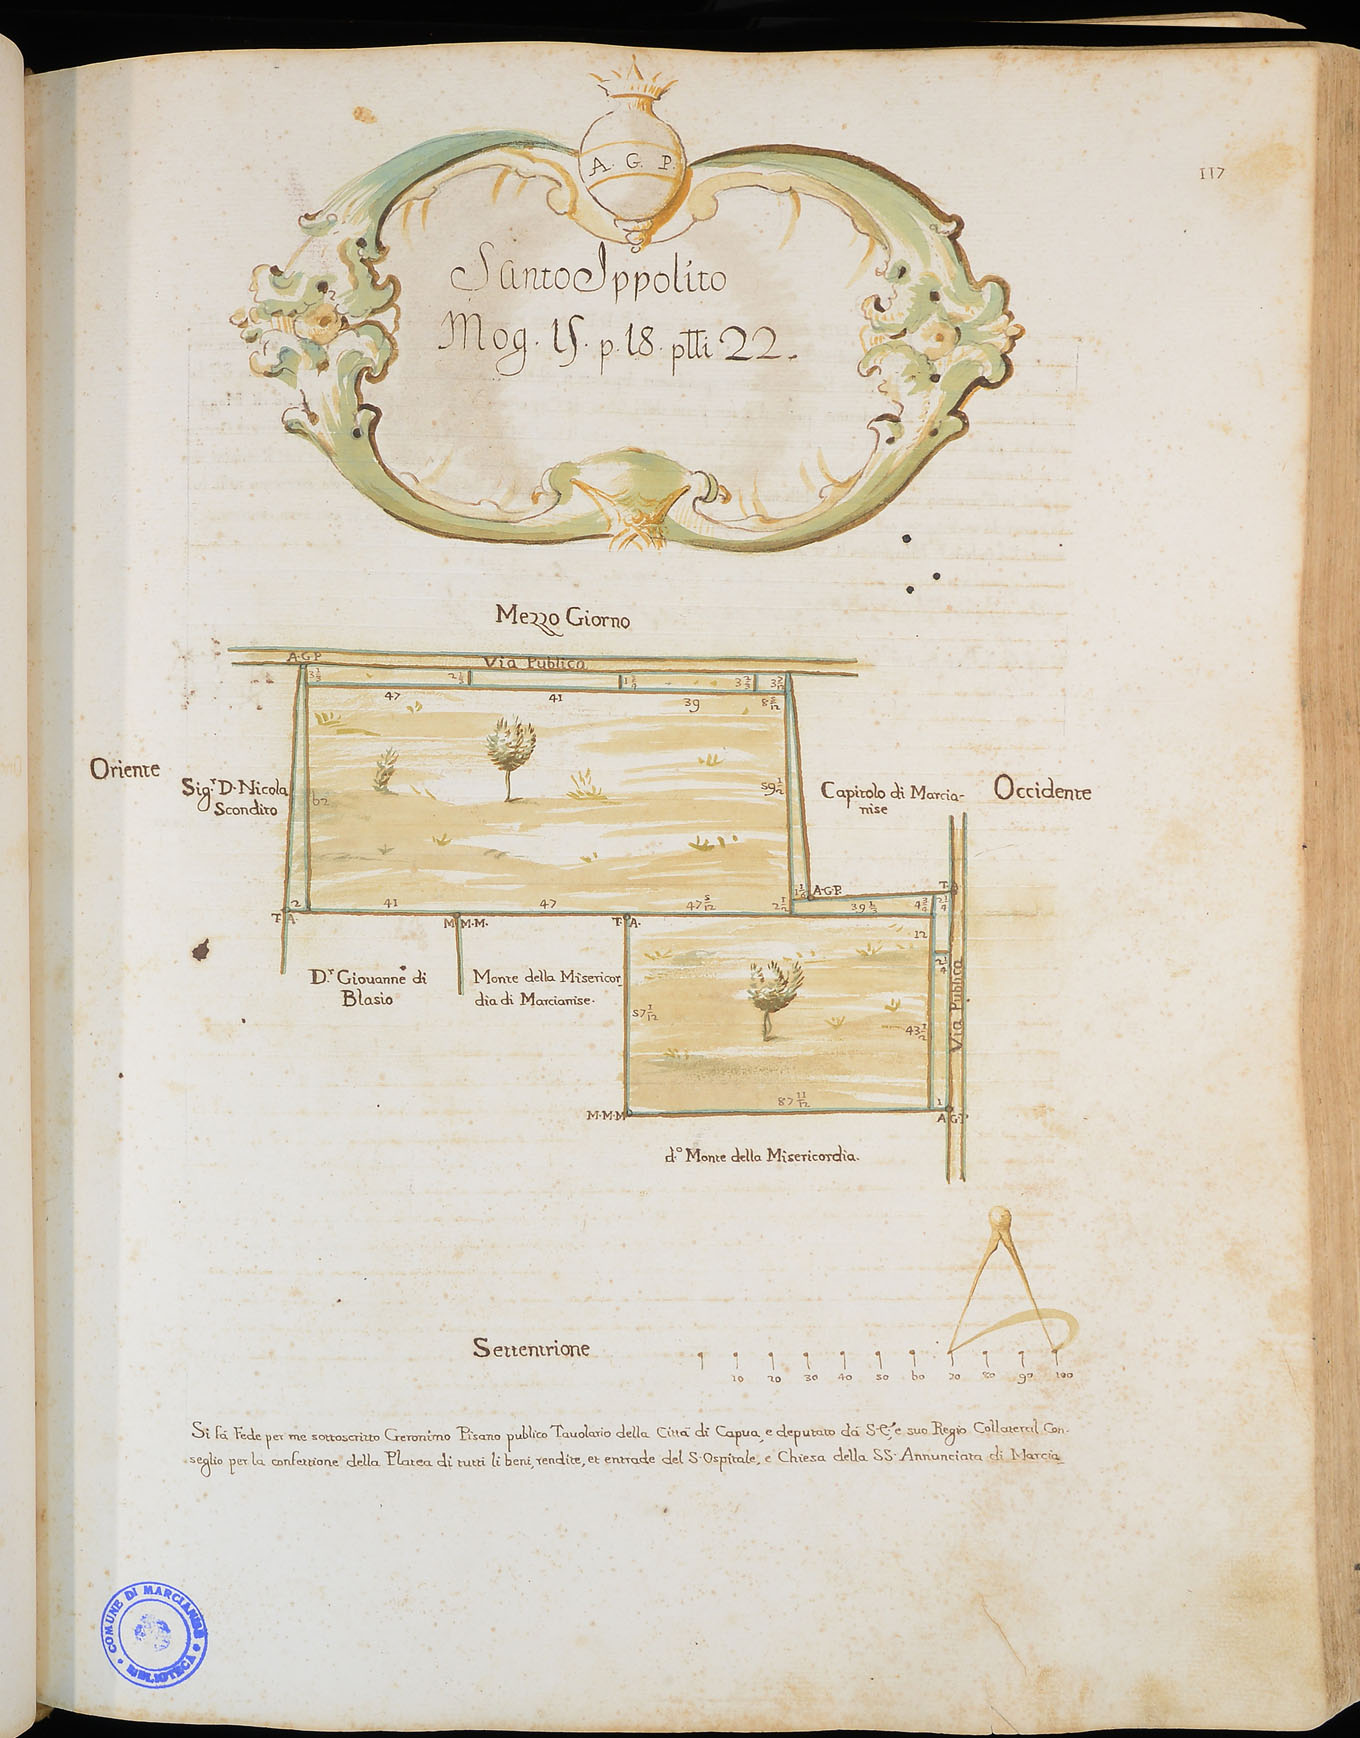 117
A. G. P.
Santo Ippolito
Mog. 15. p. 18. ptti 22.
Mezzo Giorno
A.G.P.
Via Publica
3 1/3
2 1/3
3 2/3
47
41
39
Oriente
Sig.r D. Nicola
Scondito
62
59 1/2
Capitolo di Marcia-
nise
Occidente
A.G.P.
T. A.
2
41
47
47 5/12
2 1/12
39 1/3
4 3/4
2 1/4
T. A.
M M.M.
T. A.
12
2 1/4
D.r Giouanne di
Blasio
Monte della Misericor_
dia di Marcianise.
57 1/12
43 1/12
Via Publica
87 11/12
1
M.M.M
A G.P
d.o Monte della Misericordia.
Settentrione
10 20 30 40 50 60 70 80 90 100
Si fá Fede per me sottoscritto Geronimo Pisano publico Tauolario della Cittá di Capua, e deputato dá S.E., e suo Regio Collateral Con-
seglio per la confettione della Platea di tutti li beni, rendite, et entrade del S. Ospitale, e Chiesa della SS. Annunciata di Marcia_
COMUNE DI MARCIANISE
BIBLIOTECA